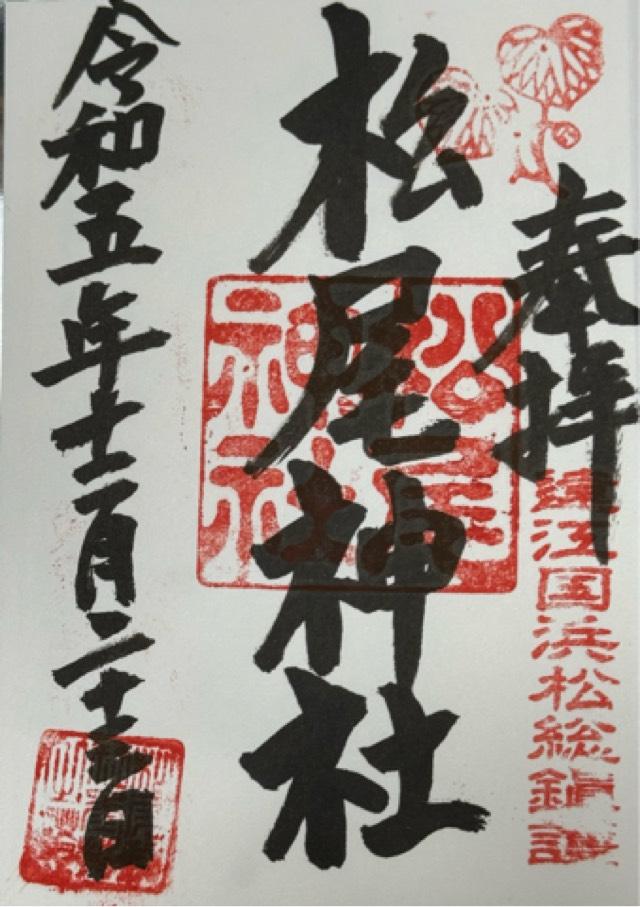 奉拝
遠江国浜松総鎮護
松尾神社
松尾
神社
令和五年十二月二十三日